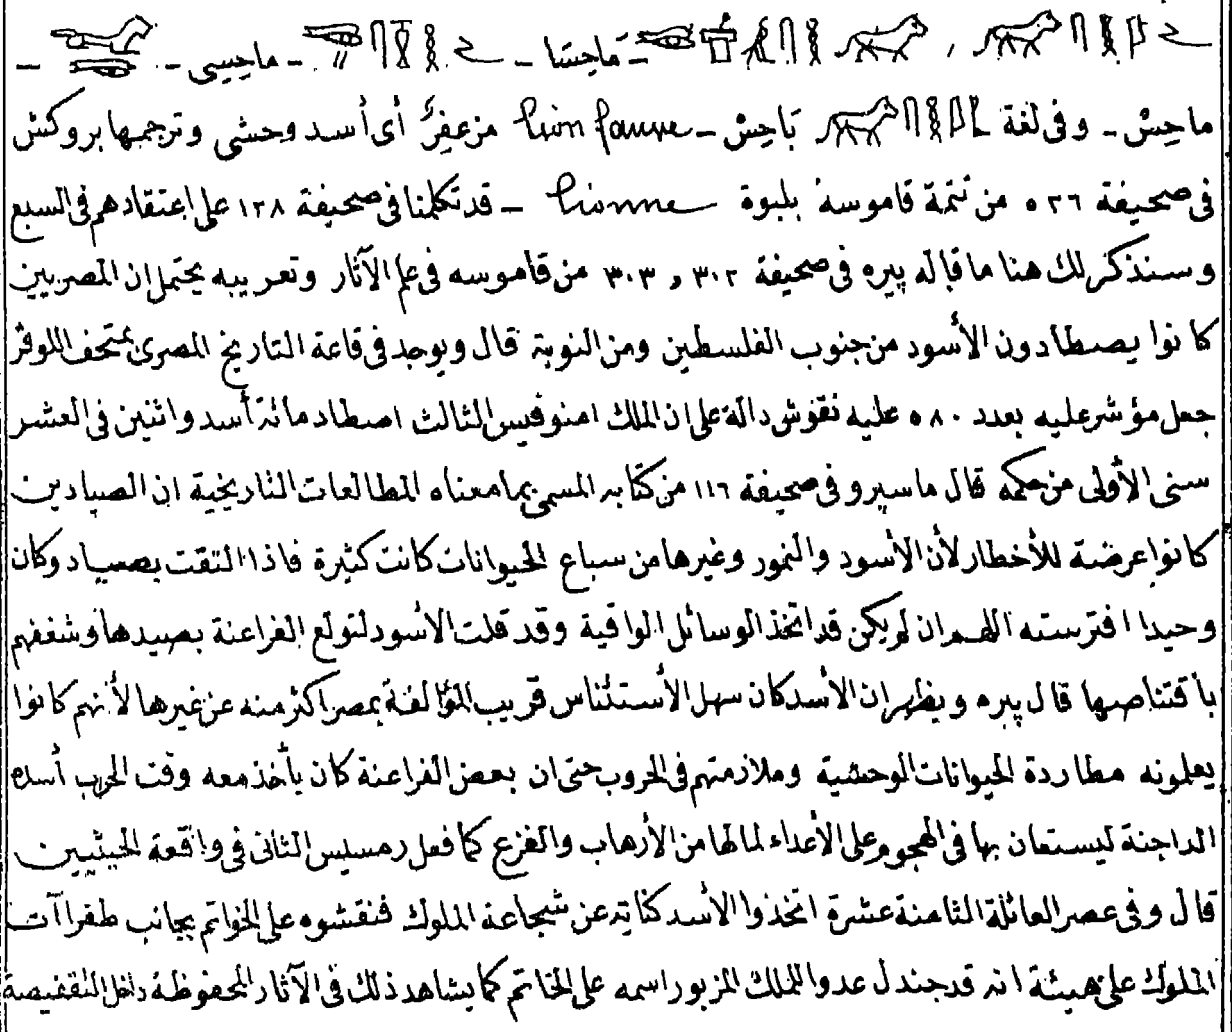 - مَاحِسَا - ماحِسِى -
ماحِسْ - وفى لغة بَاحِسْ - lion fauve مزعفِرٌ أى أسد وحشى وترجمها بروكش
فى صحيفة ٥٢٦ من تتمة قاموسه بلبوة lionne - قد تكلمنا فى صحيفة ١٢٨ على اعتقادهم فى السبع
وسنذكر لك هنا ما قاله پيره فى صحيفة ٣٠٢ و ٣٠٣ من قاموسه فى علم الآثار وتعريبه يحتمل ان المصريين
كانوا يصطادون الأسود من جنوب الفلسطين ومن النوبة قال ويوجد فى قاعة التاريخ المصرى بمتحف اللوڤر
جعل مؤشر عليه بعدد ٥٨٠ عليه نقوش دالة على ان الملك امنوفيس الثالث اصطاد مائة أسد واثنين فى العشر
سنى الأولى من حكمه قال ماسپرو فى صحيفة ١١٦ من كتابه المسمى بما معناه المطالعات التاريخية ان الصيادين
كانوا عرضة للأخطار لأن الأسود والنمور وغيرها من سباع الحيوانات كانت كثيرة فاذا التقت بصياد وكان
وحيدا افترسته اللهم ان لم يكن قد اتخذ الوسائل الواقية وقد قلت الأسود لتولع الفراعنة بصيدها وشغفهم
بأقتناصها قال پيره ويظهر ان الأسد كان سهل الأستئناس قريب المؤالفة بمصر اكثر منه عن غيرها لأنهم كانوا
يعلمونه مطاردة الحيوانات الوحشية وملازمتهم فى الحروب حتى ان بعض الفراعنة كان يأخذ معه وقت الحرب أسده
الداجنة ليستعان بها فى الهجوم على الأعداء لما لها من الأرهاب والفزع كما فعل رمسيس الثانى فى واقعة الخيثيين
قال وفى عصر العائلة الثامنة عشرة اتخذوا الأسد كناية عن شجاعة الملوك فنقشوه على الخواتم بجانب طغراآت
الملوك على هيئة انه قد جندل عدو الملك المزبور اسمه على الخاتم كما يشاهد ذلك فى الآثار المحفوظة داخل